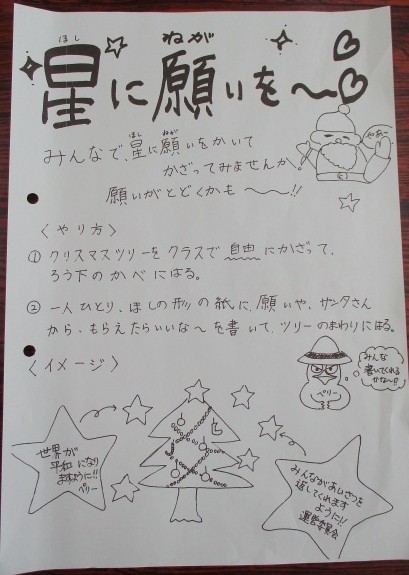 ほし ねが
星に願いを～
やあー
ほし ねが
みんなで、星に願いをかいて
かざってみませんか。
願いがとどくかも～～!!
〈やり方〉
① クリスマスツリーをクラスで自由にかざって、
ろう下のかべにはる。
② 一人ひとり、ほしの形の紙に、願いや、サンタさん
から、もらえたらいいな～を書いて、ツリーのまわりにはる。
〈イメージ〉
みんな
書いてくれる
かな～!!
ペリー
世界が
平和になり
ますように!!
ペリー
みんながあいさつを
返してくれます
ように!!
運営委員会